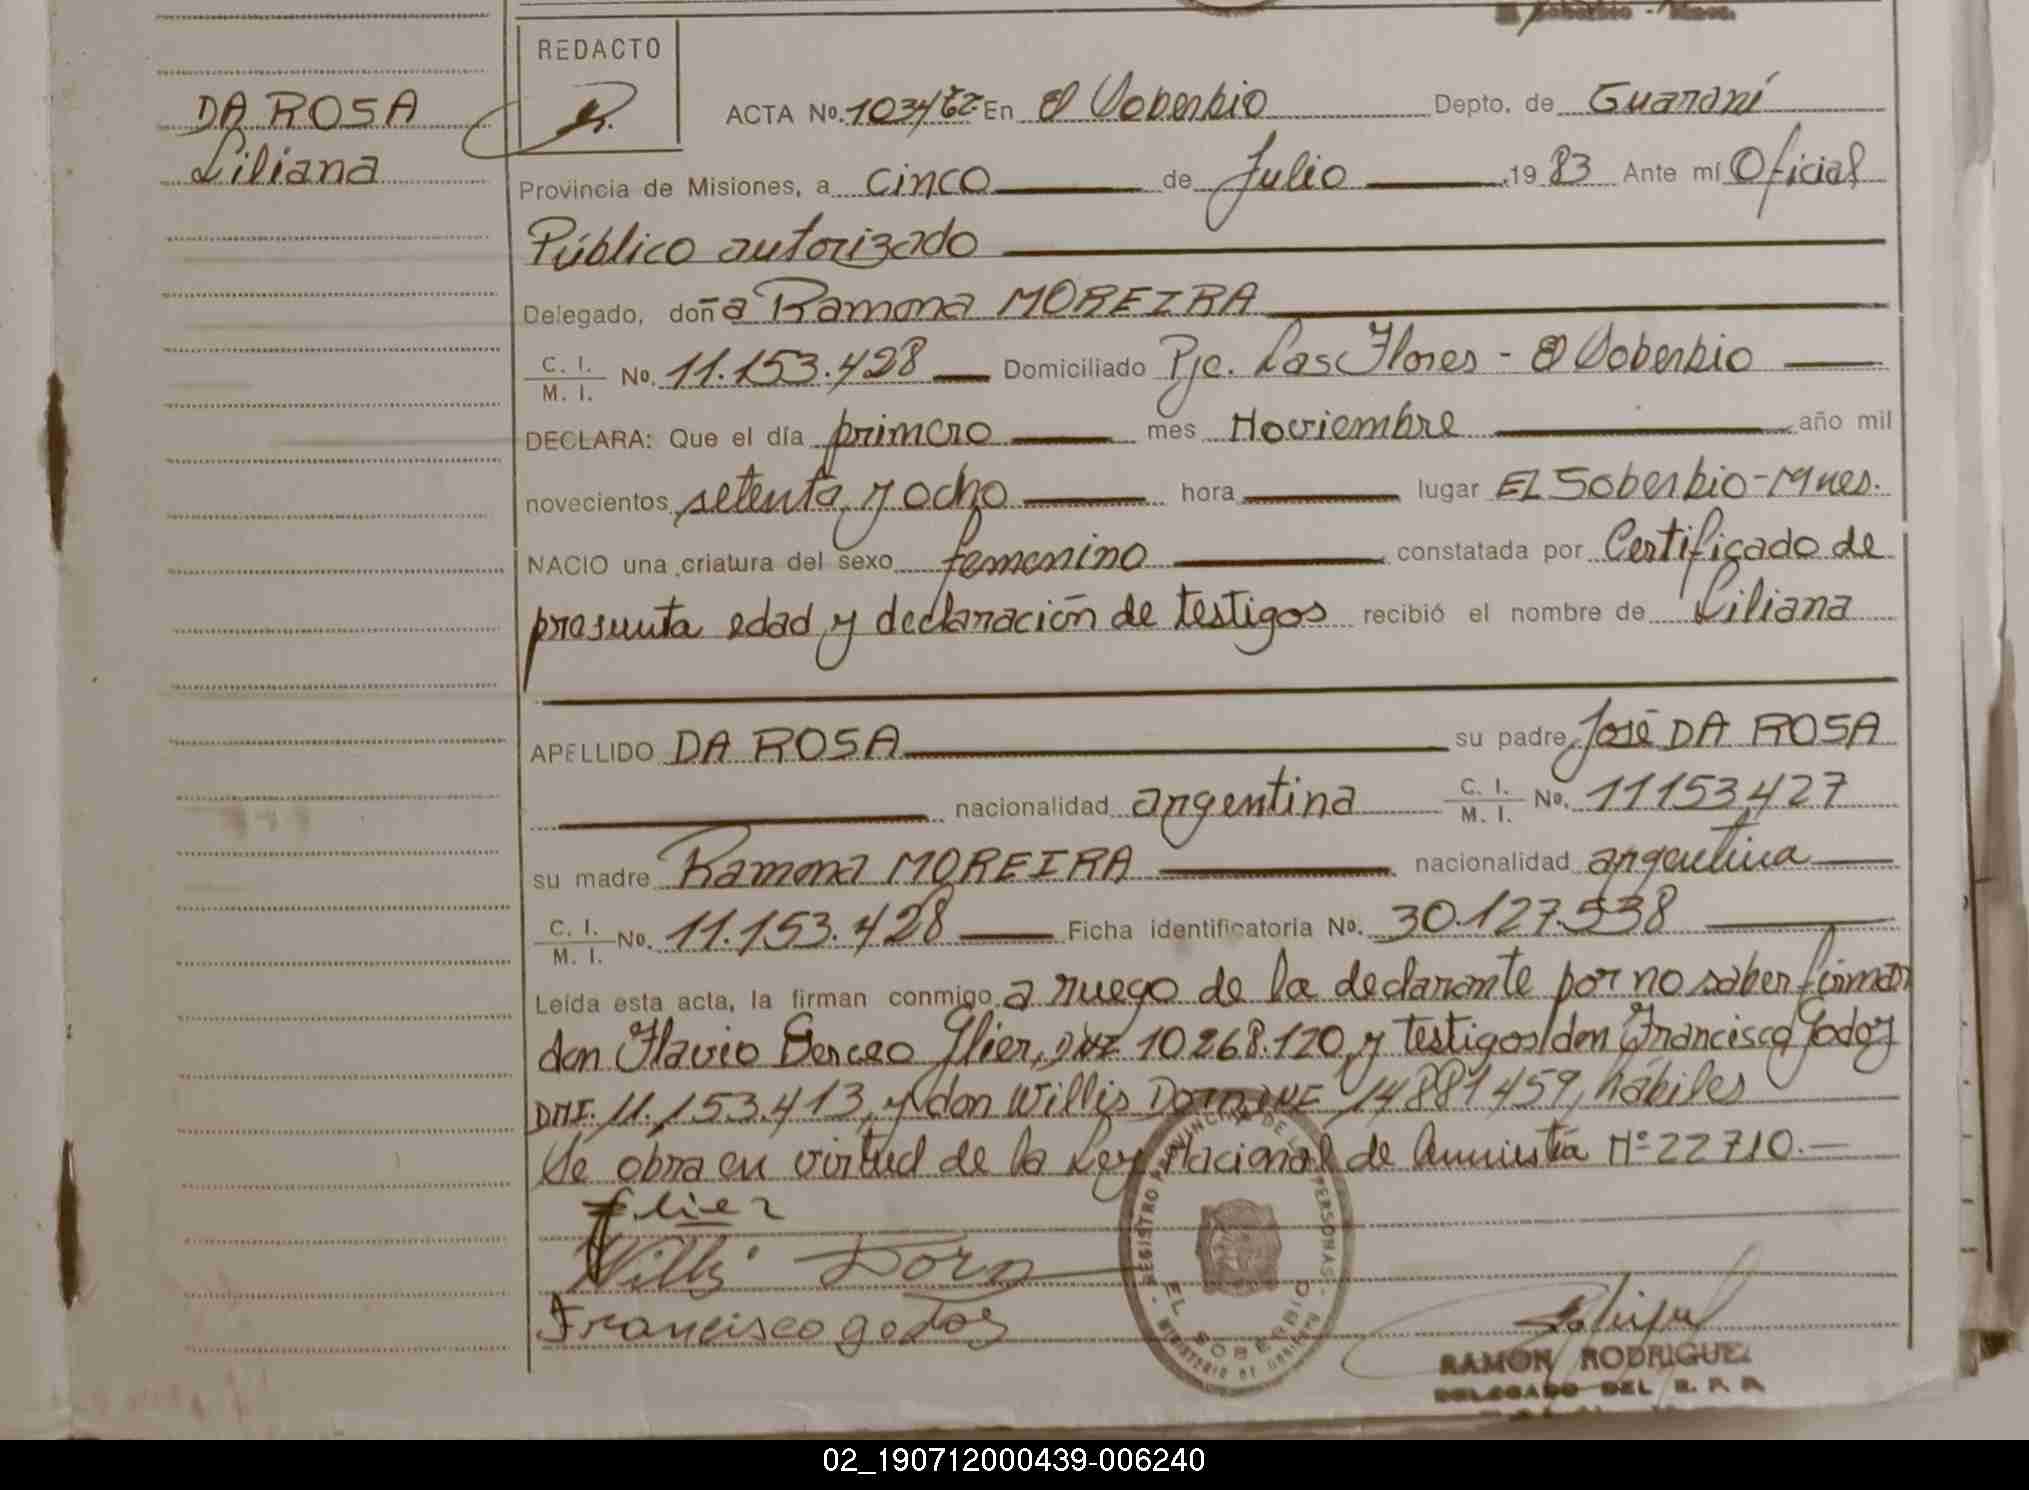 El Soberbio - Mnes.
REDACTO
DA ROSA
Liliana
ACTA No. 103/ En El Soberbio Depto. de Guaraní
Provincia de Misiones, a cinco de Julio 19 83 Ante mí Oficial
Público autorizado
Delegado, doña Ramona MOREIRA
C. I. M. I. No. 11.153.428 Domiciliado Pje. Las Flores - El Soberbio
DECLARA: Que el día primero mes Noviembre año mil
novecientos setenta y ocho hora lugar EL Soberbio-Mnes.
NACIO una criatura del sexo femenino constatada por Certificado de
presunta edad y declaración de testigos recibió el nombre de Liliana
APELLIDO DA ROSA su padre José DA ROSA
nacionalidad argentina C. I. M. I. No. 11153427
su madre Ramona MOREIRA nacionalidad argentina
C. I. M. I. No. 11.153.428 Ficha identificatoria No. 30.127.538
Leída esta acta, la firman conmigo a ruego de la declarante por no saber firmar
don Flavio Glier, DNI 10268.120, y testigos/don Francisco Godoy
DNI. 11.153.413, y don Willis DNI 14881459, hábiles
Se obra en virtud de la Ley Nacional de Amnistía Nº 22710.-
Glier
Willis Dorn
Francisco godoy
REGISTRO PROVINCIAL DE LAS PERSONAS
EL SOBERBIO
MINISTERIO DE GOBIERNO
RAMON RODRIGUEZ
DELEGADO DEL R. P. P.
02_190712000439-006240